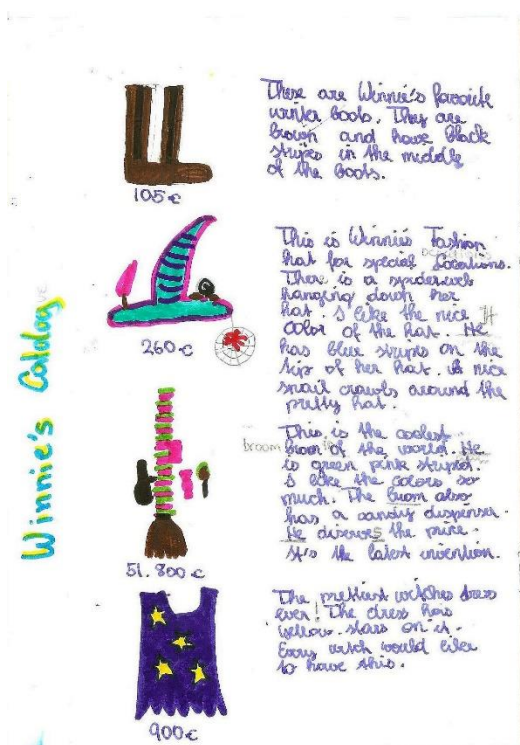 Winnie's Catalog
These are Winnie's favorite
winter boots. They are
brown and have black
stripes in the middle
of the boots.
105 €
This is Winnie's Fashion
hat for special Locations.
occasions
There is a spiderweb
hanging down her
hat. I like the nice
color of the hat. He
It
has blue stripes on the
tip of her hat. A nice
snail crawls around the
pretty hat.
260 €
This is the coolest
broom of the world. He
broom
is green pink striped
I like the colors so
much. The broom also
has a candy dispenser.
He discovers the
It's the latest invention.
51.800 €
The prettiest witches dress
ever! The dress has
yellow stars on it.
Every witch would like
to have this.
900 €